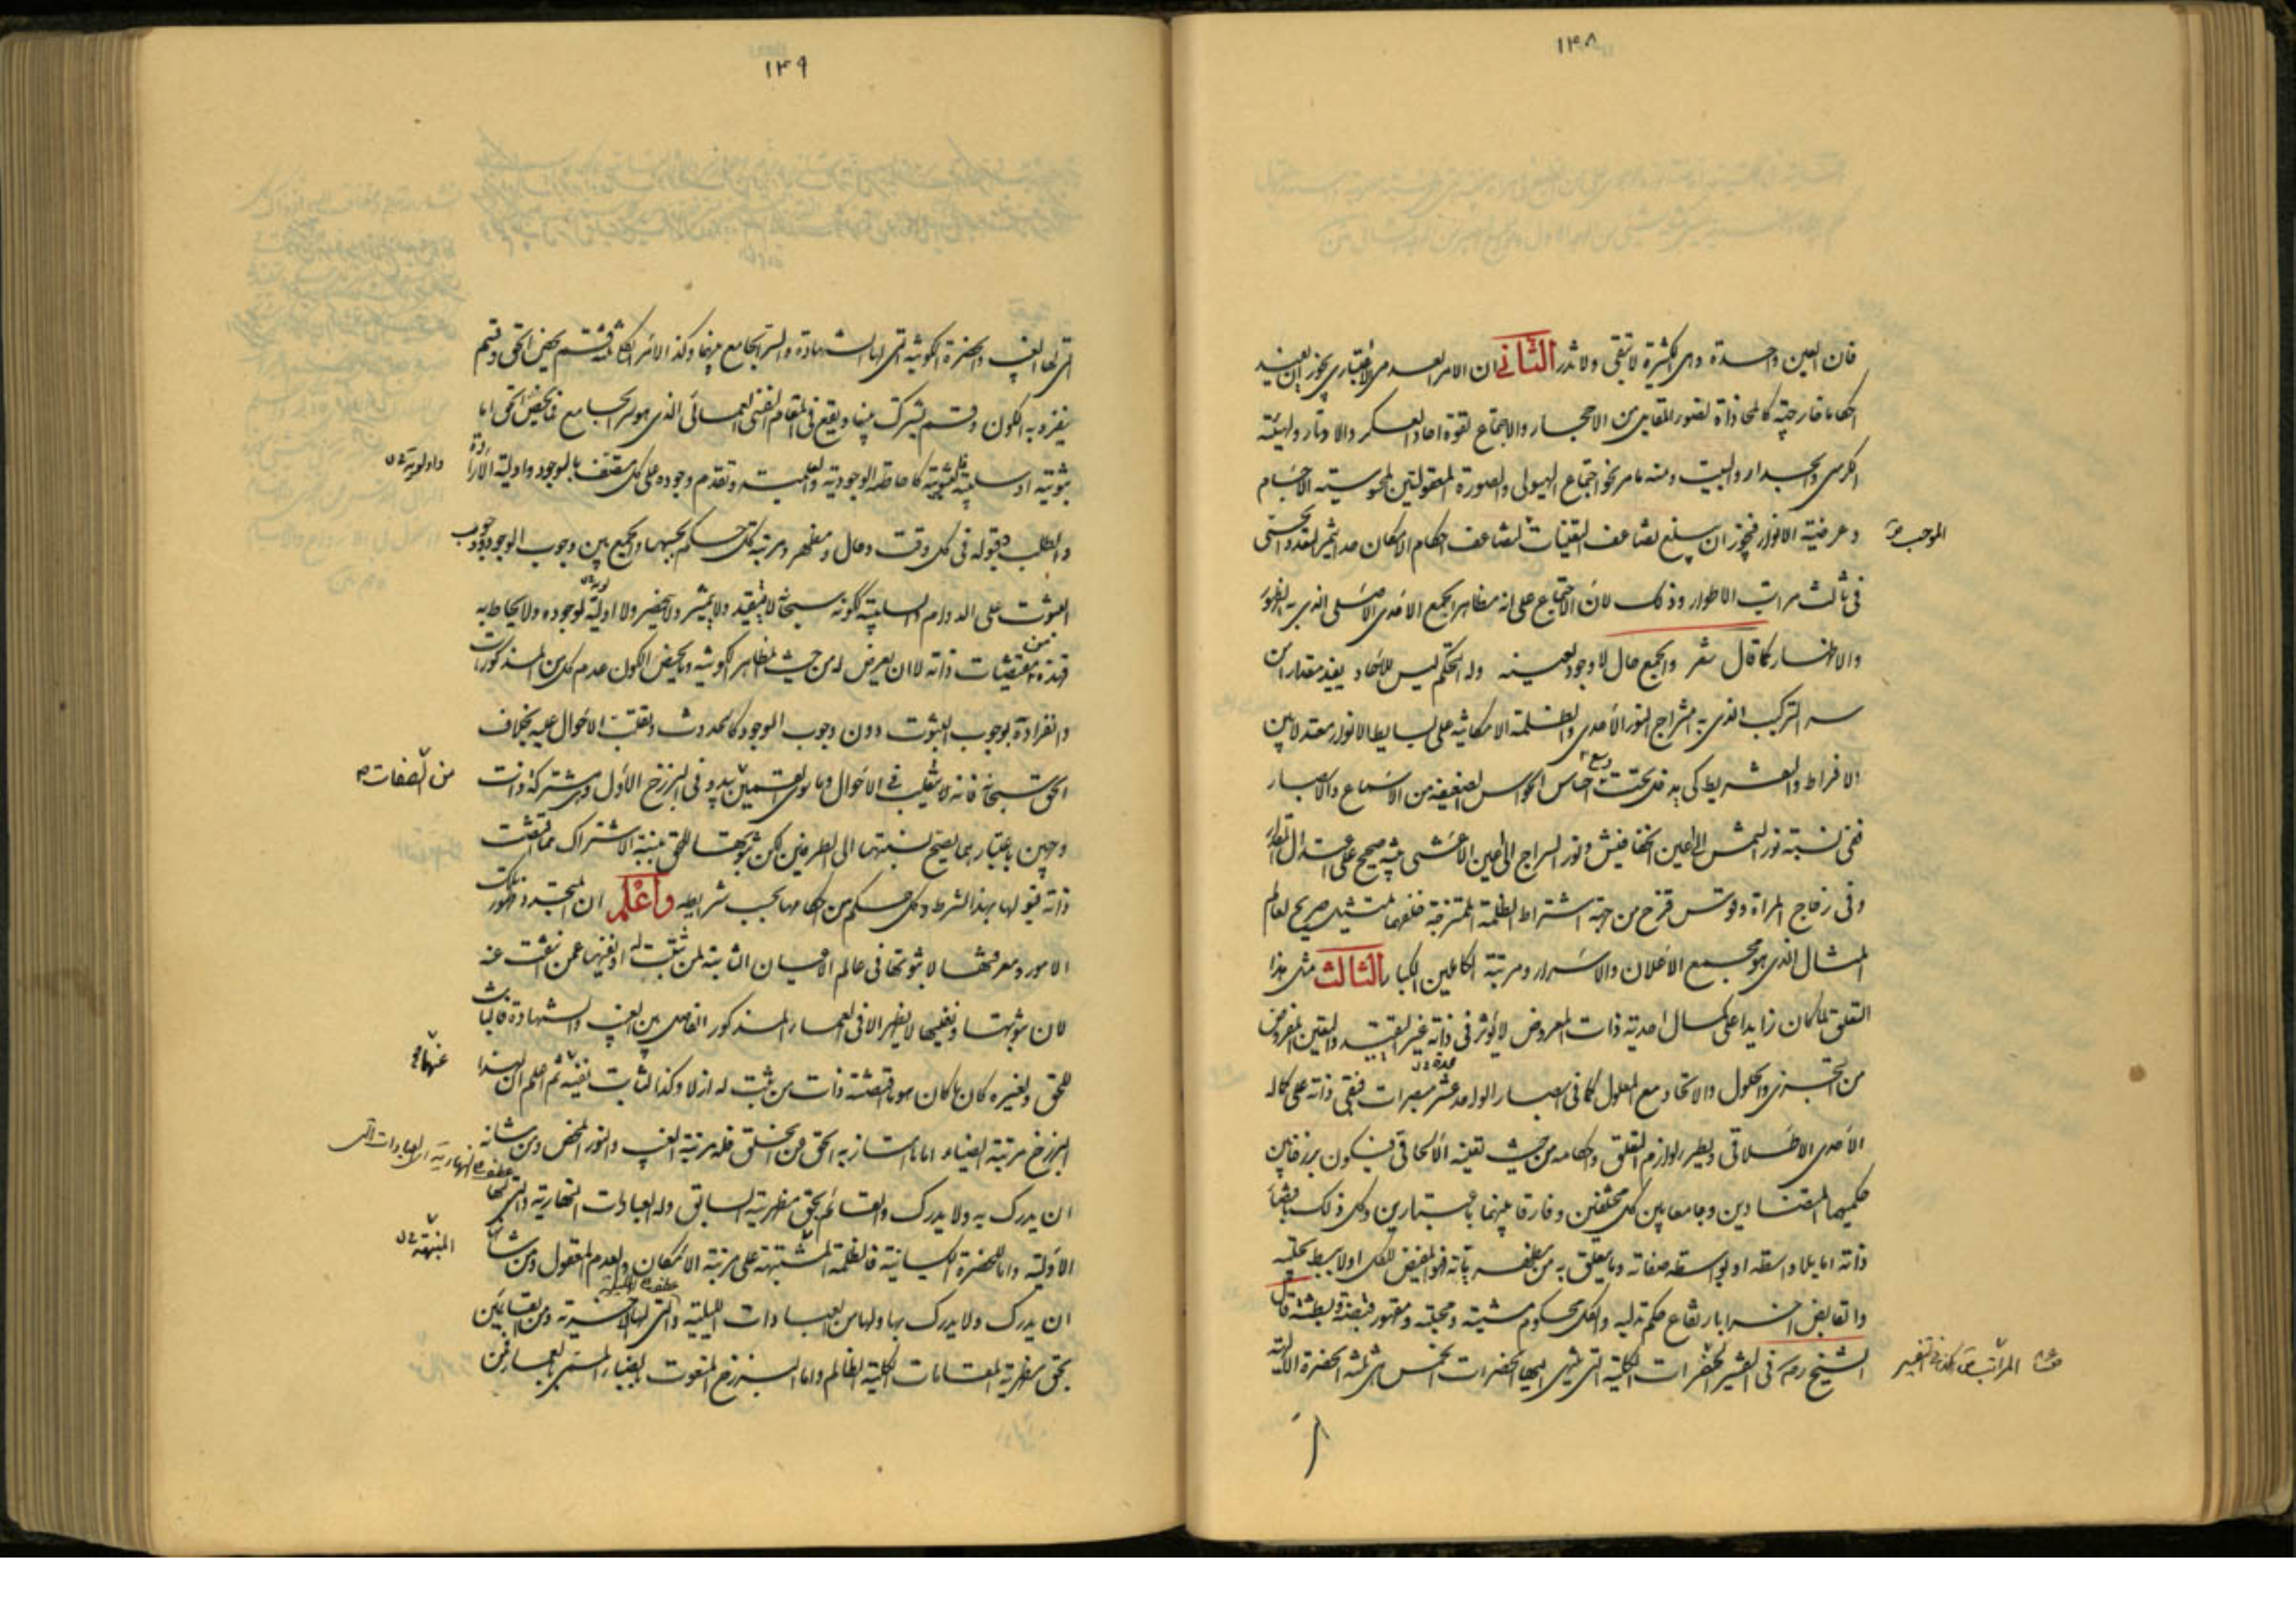 ١٤٨
فان العين واحدة وهى لكثيرة لا تبقى ولا تذر الثانى ان الامر العدمى الاعتبارى يجوز ان يفيد
احكاما خارجية كالمحاذاة لصور المتقابلين من الاحجار والاجتماع لقوة احاد العسكر والاوتار ولهيئة
الكرسى والجدار والبيت ومنه ما مر نحو اجتماع الهيولى والصورة المعقولتين لمحسوسية الاجسام
وعرضية الانوار فيجوز ان يبلغ تضاعف التعينات لتضاعف احكام الامكان حد اثمر التقدر الحسى
الموجب
فى ثالث مراتب الاطوار وذلك لان الاجتماع على انه مظاهر الجمع الاحدى الاصلى الذى به الظهور
والاظهار كما قال شعر والجمع حال لا وجود لعينه وله التحكم ليس للاحاد يفيد مقدارا من
سر التركيب الذى به امتزاج النور الاحدى والظلمة الامكانية على بسايط الانوار معتدلا بين
الافراط والتفريط كى يدخل تحت وسع احساس الحواس الضعيفة من الاسماع والابصار
ففى نسبة نور الشمس الى اعين الخفافيش ونور السراج الى عين الاعشى تنبيه صحيح على اعتدال المقدار
وفى زجاج المراة وقوس قزح من جهة اشتراط الظلمة الممتزجة خلفهما تمثيل صريح لعالم
المثال الذى هو مجمع الاعلان والاسرار ومرتبة الكاملين الكبار الثالث مثل هذا
التعلق لما كان زايدا على كمال احدية ذات المعروض لا يؤثر فى ذاته غير التقييد والتعين المعروض
من التجزى والحلول والاتحاد مع المعلول كما فى ابصار الواحد عشر مبصرات فيبقى ذاته على كماله
الاحدى الاطلاقى ويظهر لوازم التعلق واحكامه من حيث تعينه الالحاقى فيكون برزخا بين
حكميهما المتضادين وجامعا بين كل مختلفين وفارقا بينهما باعتبارين وكل ذلك باقتضاء
ذاته اما بلا واسطة او بواسطة صفاته وما يتعلق به من مظهرياته فهو المفيض للكل اولا ببسط تجليه
والقابض اخرا بارتفاع حكم تدليه والكل محكوم مشيته ومحبته ومقهور قبضته وبسطته قال
الشيخ رضى فى التفسير الحضرات الكلية التى ينتهى اليها الحضرات الخمس هى ثلثة الحضرة الالهية
١٤٩
التى لها الغيب والحضرة الكونية التى لها الشهادة والسر الجامع بينهما وكذا الامر الكل ثلثة قسم يخص الحق وقسم
ينفرد به الكون وقسم يشترك بينهما ويقع فى المقام النفسى العمائى الذى هو السر الجامع فما يخص الحق اما
ثبوتية او سلبية فالثبوتية كاحاطته الوجودية والعلمية وتقدم وجوده على كل متصف بالوجود واولية الارادة
والطلب وقبوله فى كل وقت وحال ومظهر ومرتبة كل حكم بحسبها والجمع بين وجوب الوجود ووجوب
الثبوت على الدوام والسلبية ككونه سبحانه لا يتقيد ولا يتميز ولا ينحصر ولا اولية لوجوده ولا يحاط به
فهذه من مقتضيات ذاته لا ان يعرض له من حيث المظاهر الكونية وما يخص الكون عدم كل من المذكورات
وانفراده بوجوب الثبوت دون وجوب الوجود كالحدوث وتقلب الاحوال عليه بخلاف
الحق سبحانه فانه لا يتقلب فى الاحوال وما سوى القسمين يبدو فى البرزخ الاول وهى مشتركة ذات
من الصفات
وجهين باعتبارهما يصح نسبتها الى الطرفين لكن ثبوتها للحق بنسبة الاشتراك مما اقتضت
ذاته قبولها بهذا الشرط وكل حكم من احكامها بحسب شرايطه واعلم ان المتجدد ظهور تلك
الامور ومعرفتها لا ثبوتها فى عالم الاعيان الثابتة لمن ثبتت له او نفيها عمن انتفت عنه
لان ثبوتها ونفيها لا يظهر الا فى العماء المذكور الفاصل بين الغيب والشهادة فالثابت
للحق ولغيره كان ما كان هو ما اقتضته ذات من ثبت له ازلا وكذا الثابت نفيه ثم اعلم ان لهذا
البرزخ مرتبة الضياء اما ما امتاز به الحق من الخلق فله مرتبة الغيب والنور المحض ومن شانه
ان يدرك به ولا يدرك والقائم بحق مظهرية السابق وله العبادات النهارية والتى لها
الاولية واما للحضرة الكيانية فالظلمة المشتبهة على مرتبة الامكان والعدم المعقول ومن شانها
ان يدرك ولا يدرك بها ولها من العبادات الليلية والتى لها الاخرية ومن القايمين
بحق مظهرية المقامات الكلية الظالم واما البرزخ المنعوت بالضياء المسمى بالعماء فمن